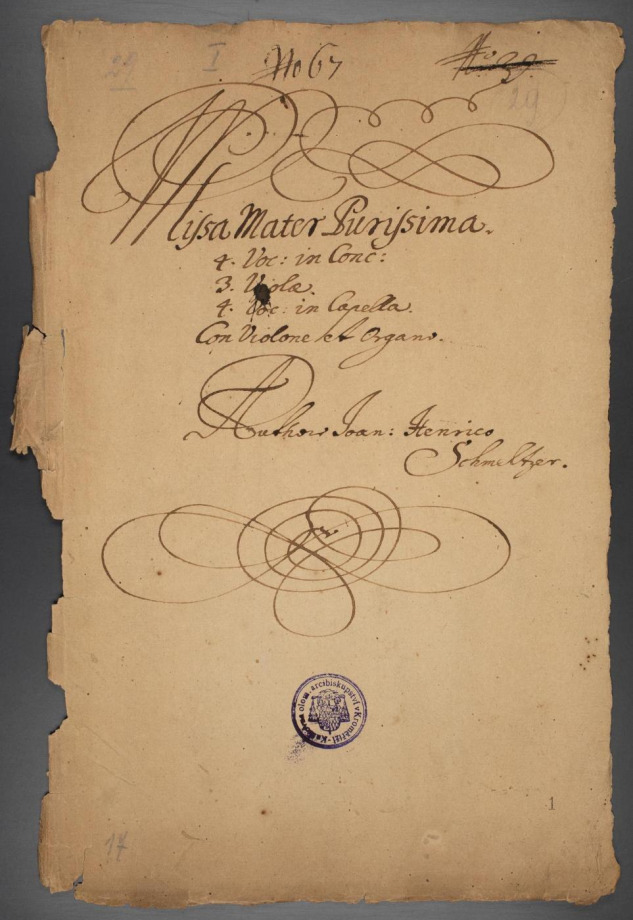 29
I
No 67
No 39.
29
Missa Mater Purissima.
4. Voc: in Conc:
3. Violæ.
4. Voc: in Capella.
Con Violone et Organo.
Authore Joan: Henrico
Schmeltzer.
olom. arcibiskupství v Kroměříži
1
17